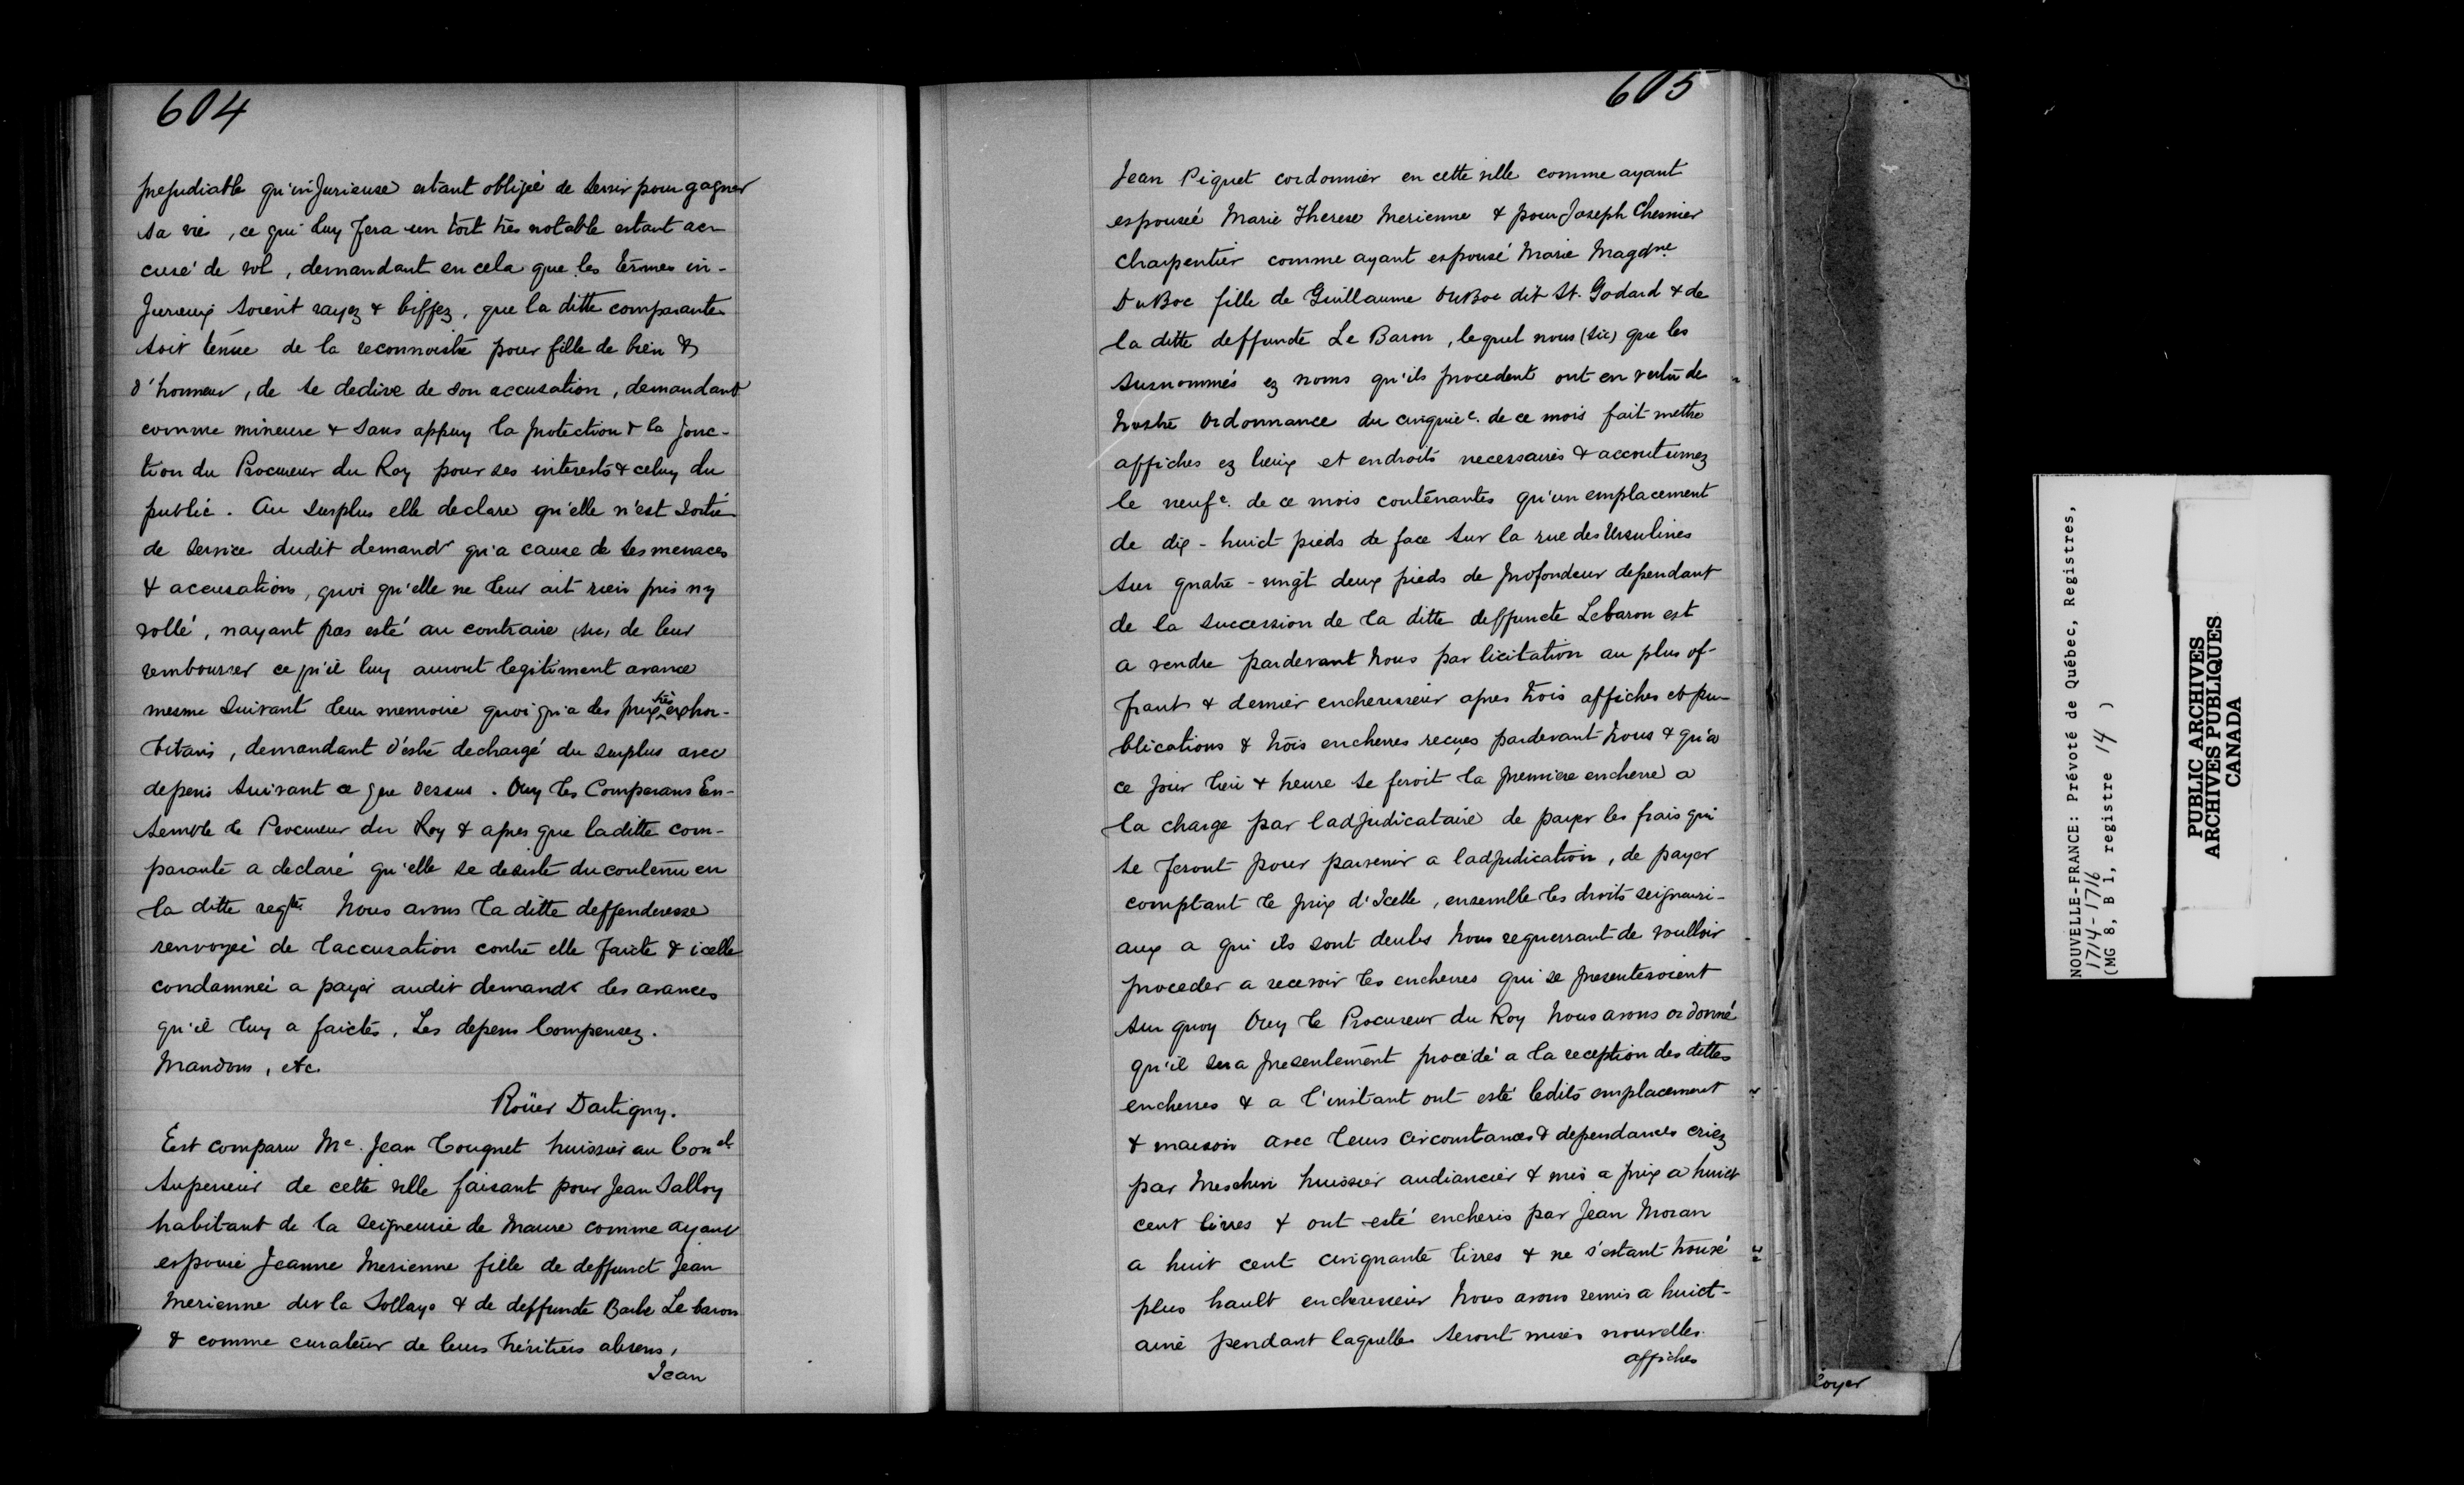 604
prejudiable qu'injurieuse estant obligée de servir pour gagner
sa vie, ce qui luy fera un tort très notable estant ac-
cusé de vol, demandant en cela que les termes in-
jurieux soient rayez & biffez, que la ditte comparante
soit tenüe de la reconnoistre pour fille de bien &
d'honneur, de se dedire de son accusation, demandant
comme mineure & sans appuy la protection & la jonc-
tion du Procureur du Roy pour ses interests & celuy du
public. Au surplus elle declare qu'elle n'est sortie
de service dudit demandr qu'a cause de ses menaces
& accusations, quoi qu'elle ne leur ait rien pris ny
vollé, nayant pas esté au contraire (sic) de leur
rembourser ce qu'il luy auront legitiment avance
mesme suivant leur memoire quoi qu'a des prix très exhor-
bitans, demandant d'estre dechargé du surplus avec
depens suivant ce que dessus. Ouy les Comparans En-
semble le Procureur du Roy & apres que laditte com-
parante a declaré qu'elle se desiste du contenu en
la ditte reqte Nous avons la ditte deffenderesse
renvoyée de l'accusation contre elle faicte & icelle
condamnée a payer audit demandr les avances
qu'il luy a faictes, Les depens Compensez.
Mandons, etc.
Roüer Dartigny.
Est comparu Me. Jean Congnet huissier au Conel
Superieur de cette ville faisant pour Jean Salloy
habitant de la seigneurie de Maure comme ayant
espousé Jeanne Merienne fille de deffunct Jean
Merienne dit la Sollaye & de deffunte Barbe Le baron
& comme curateur de leurs héritiers absens,
Jean
605
Jean Piquet cordonnier en cette ville comme ayant
espouseé Marie Therese Merienne & pour Joseph Chesnier
charpentier comme ayant espousé Marie Magdne
DuBoc fille de Guillaume DuBoc dit St. Godard & de
la ditte deffunte Le Baron, lequel nous (sic) que les
susnommés ez noms qu'ils procedent ont en vertu de
Nostre Ordonnance du cinquiee. de ce mois fait mettre
affiches ez lieux et endroits necessaires & accoutumez
le neufe. de ce mois contenantes qu'un emplacement
de dix-huict pieds de face sur la rue des Ursulines
sur quatre-vingt deux pieds de profondeur dependant
de la succession de la ditte deffuncte Lebaron est
a vendre pardevant Nous par licitation au plus of-
frant & dernier encherisseur apres trois affiches et pu-
blications & trois encherres reçues pardevant Nous & qu'a
ce jour lieu & heure se feroit la premiere encherre a
la charge par ladjudicataire de payer les frais qui
se feront pour parvenir a ladjudication, de payer
comptant le prix d'Icelle, ensemble les droits seigneuri-
aux a qui ils sont deubs Nous requerrant de voulloir
proceder a recevoir les encherres qui se presenteroient
Sur quoy Ouy le Procureur du Roy Nous avons ordonné
qu'il sera presentement procédé a la reception des dittes
encherres & a l'instant ont esté ledits emplacement
& maison avec leurs circonstances & dependances criez
par Meschin huissier audiancier & mis a prix a huict
cent livres & ont esté encheris par Jean Moran
a huit cent cinquante livres & ne s'estant trouvé
plus hault encherisseur Nous avons remis a huict-
aine pendant laquelle seront mises nouvelles
affiches
loyer
NOUVELLE-FRANCE: Prévoté de Québec, Registres,
1714-1716
(MG 8, B 1, registre 14 )
PUBLIC ARCHIVES
ARCHIVES PUBLIQUES
CANADA